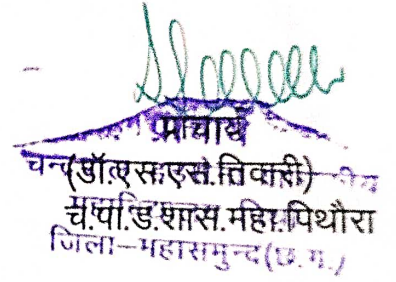 प्राचार्य
(डॉ.एस.एस.तिवारी)
च.पा.ड.शास.महा.पिथौरा
जिला-महासमुन्द(छ.ग.)